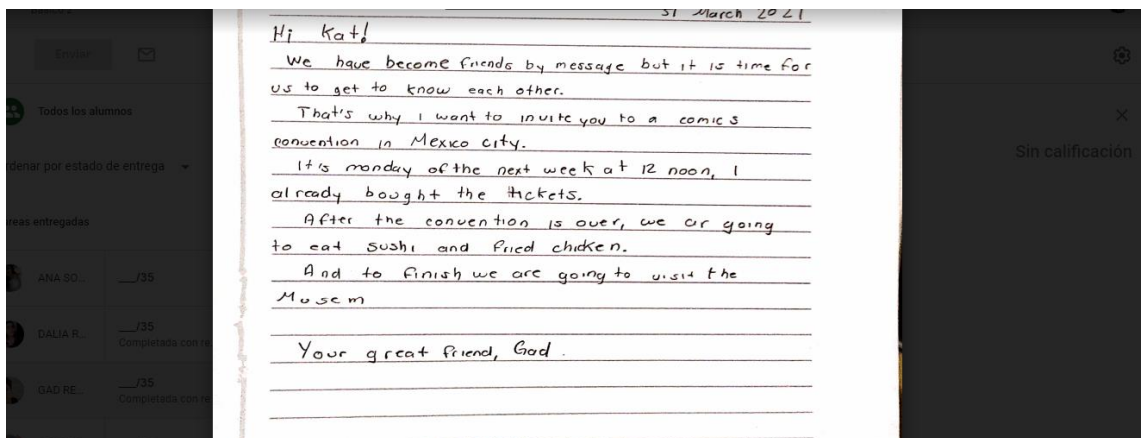 31 March 2021
Hi Kat!
We have become friends by message but it is time for
us to get to know each other.
That's why I want to invite you to a comics
convention in Mexico city.
It is monday of the next week at 12 noon, I
already bought the tickets.
After the convention is over, we ar going
to eat sushi and fried chicken.
And to finish we are going to visit the
Musem
Your great friend, Gad.
Enviar
Todos los alumnos
rdenar por estado de entrega
reas entregadas
ANA SO... ___/35
DALIA R... ___/35
Completada con re
GAD RE... ___/35
Completada con re
Sin calificación